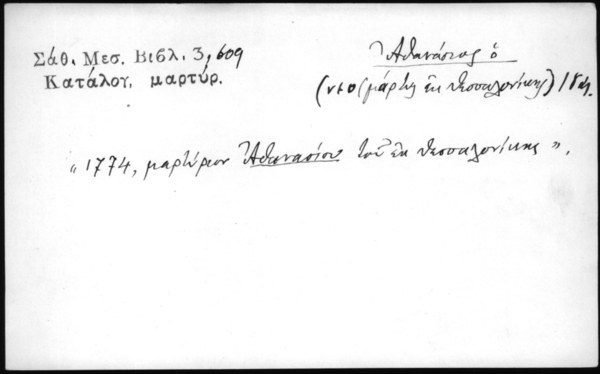 Σάθ. Μεσ. Βιβλ. 3, 609
Κατάλογ. μαρτύρ.
Ἀθανάσιος ὁ
(νεομάρτυς ἐκ Θεσσαλονίκης) 18
"1774, μαρτύριον Ἀθανασίου τοῦ ἐκ Θεσσαλονίκης".